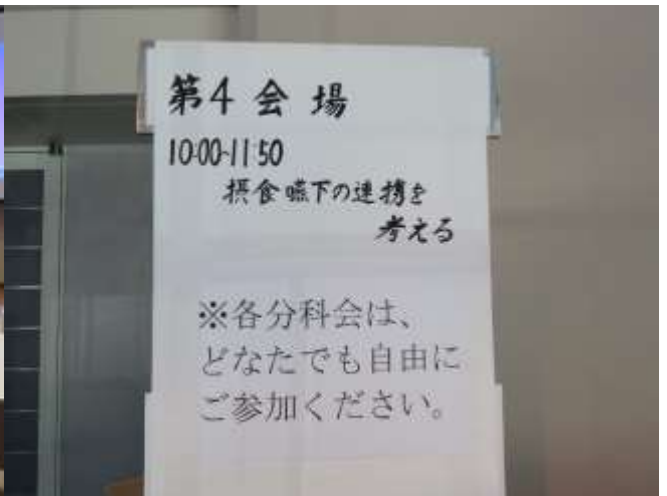 第4会場
10:00-11:50
摂食嚥下の連携を
考える
※各分科会は、
どなたでも自由に
ご参加ください。